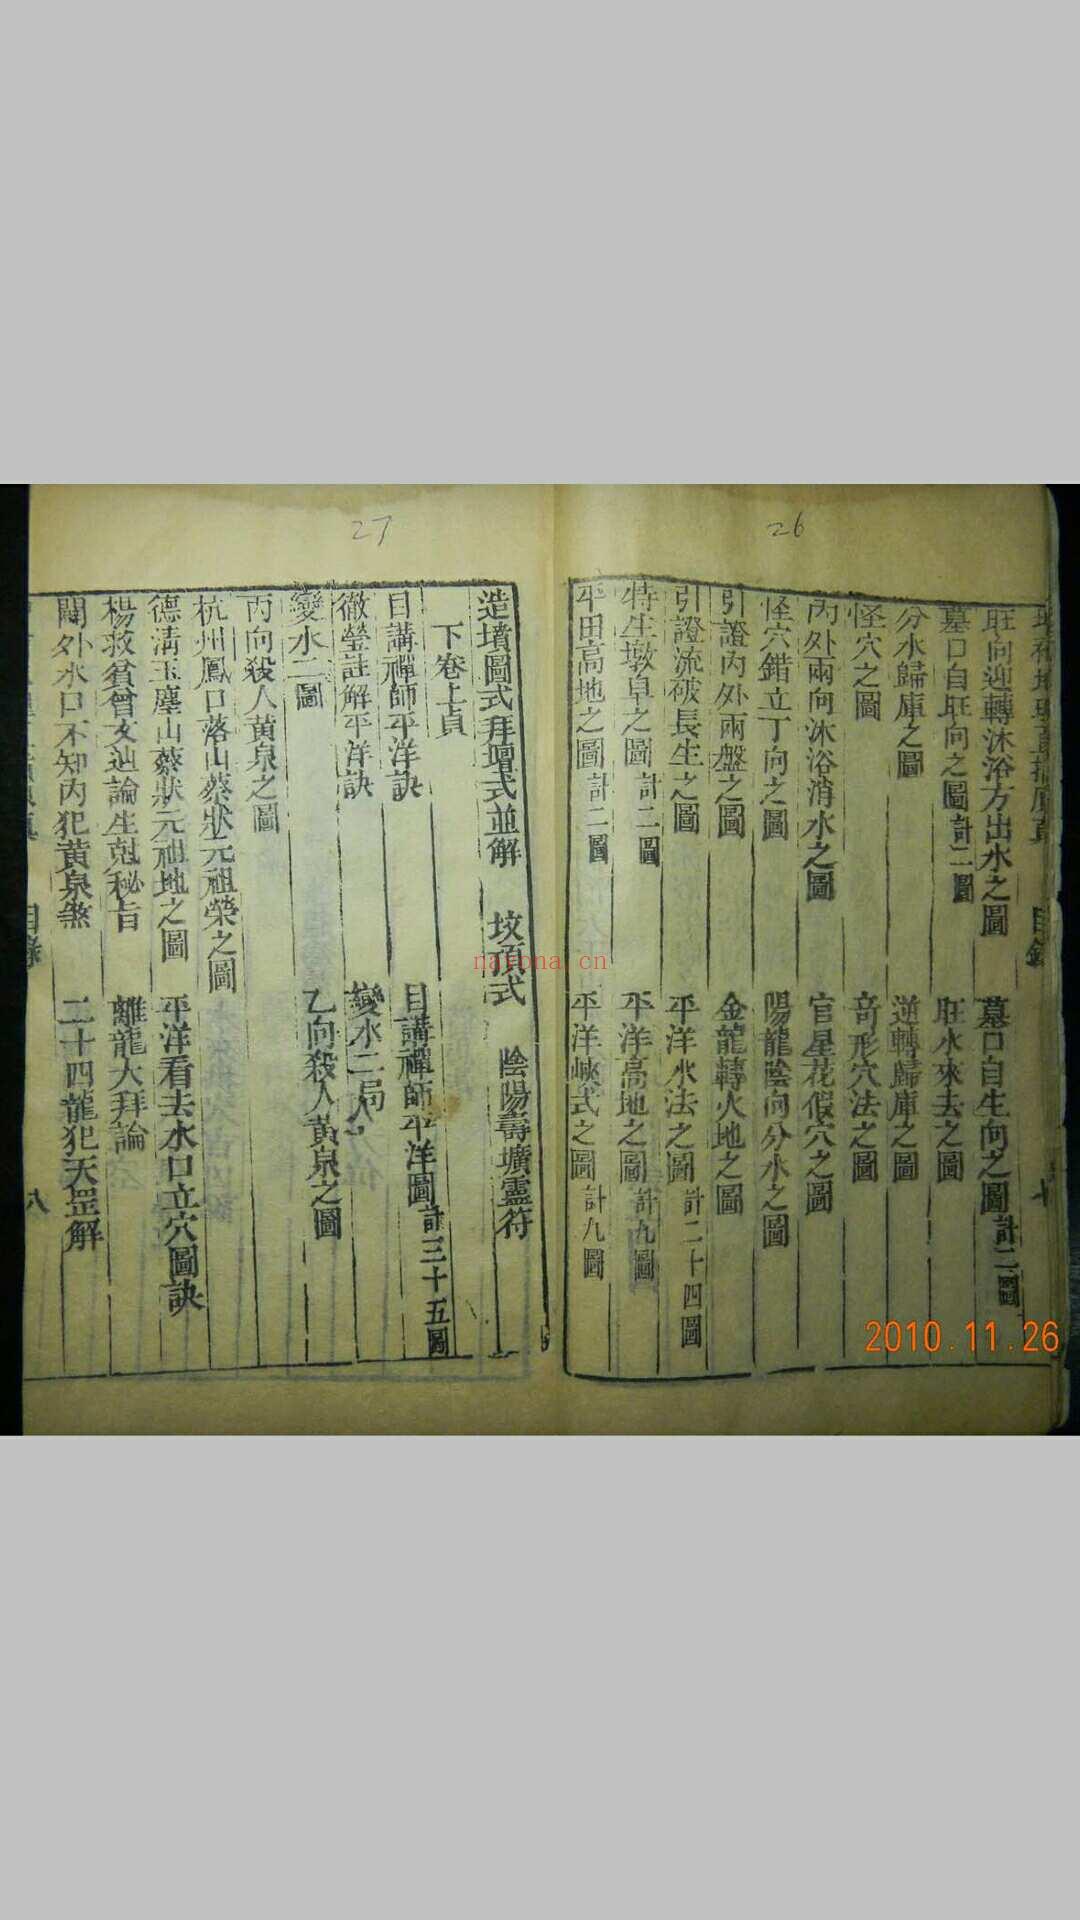 26
旺向迎轉沐浴方出水之圖 墓口自生向之圖計二圖
墓口自旺向之圖計二圖 旺水來去之圖
分水歸庫之圖 逆轉歸庫之圖
怪穴之圖 奇形穴法之圖
內外兩向沐浴消水之圖 官星花假穴之圖
怪穴錯立丁向之圖 陽龍陰向分水之圖
引證內外兩盤之圖 金龍轉火地之圖
引證流破長生之圖 平洋水法之圖計二十四圖
特生墩阜之圖計二圖 平洋高地之圖計九圖
平田高地之圖計二圖 平洋峽式之圖計九圖
27
造墳圖式拜壇式並解 坟頂式 陰陽壽壙靈符
下卷上貞
目講禪師平洋訣 目講禪師平洋圖計三十五圖
徹瑩註解平洋訣 變水二局
變水二圖 乙向殺人黃泉之圖
丙向殺人黃泉之圖
杭州鳳口落山蔡狀元祖榮之圖
德淸玉塵山蔡狀元祖地之圖 平洋看去水口立穴圖訣
楊救貧曾文辿論生尅秘旨 離龍大拜論
關外水口不知內犯黃泉煞 二十四龍犯天罡解
目錄
八
nayona.cn
2010.11.26